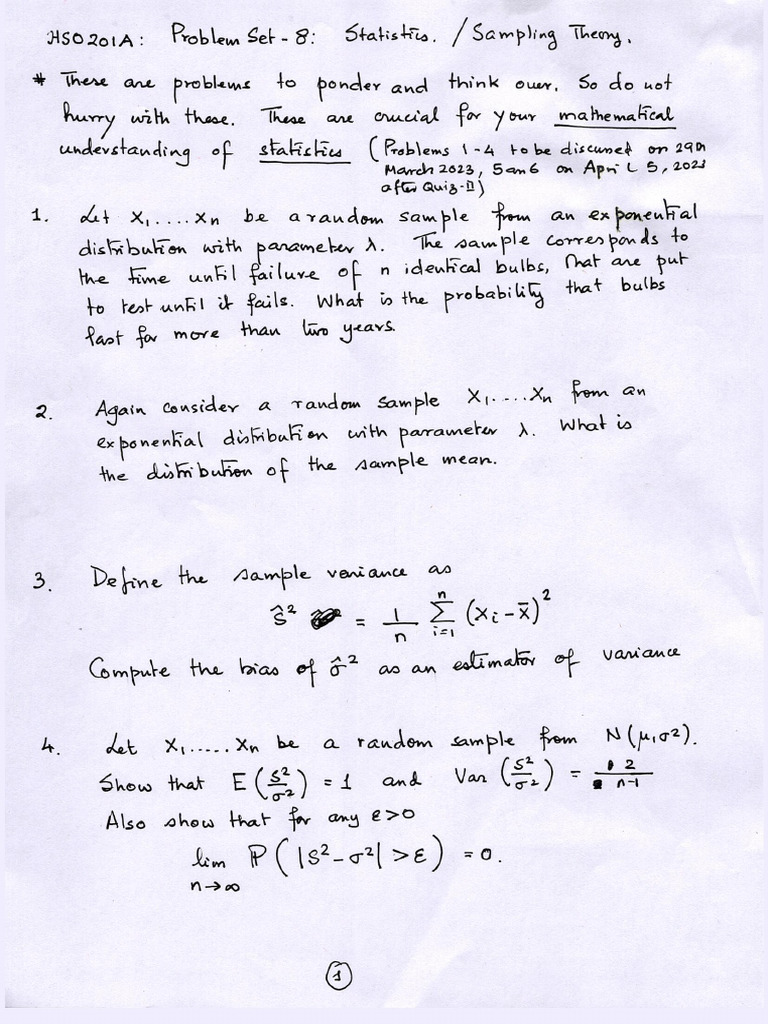 HSO201A: Problem Set - 8: Statistics. / Sampling Theory.
* These are problems to ponder and think over. So do not
hurry with these. These are crucial for your mathematical
understanding of statistics (Problems 1-4 to be discussed on 29th
March 2023, 5 an 6 on April 5, 2023
after Quiz-II)
1. Let X₁....Xn be a random sample from an exponential
distribution with parameter λ. The sample corresponds to
the time until failure of n identical bulbs, that are put
to test until it fails. What is the probability that bulbs
last for more than two years.
2. Again consider a random sample X₁....Xn from an
exponential distribution with parameter λ. What is
the distribution of the sample mean.
3. Define the sample variance as
ŝ² = 1/n Σ_{i=1}^{n} (Xi - X̄)²
Compute the bias of σ̂² as an estimator of variance
4. Let X₁.....Xn be a random sample from N(μ,σ²).
Show that E(S²/σ²) = 1 and Var(S²/σ²) = 2/n-1
Also show that for any ε>0
lim_{n→∞} ℙ(|S²-σ²|>ε) = 0.
1